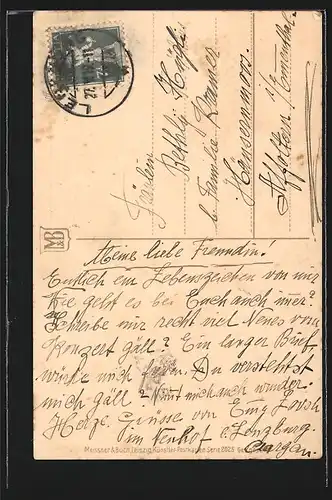 Fräulein
Bethly Hüssy
b. Familie Kramer
Affoltern i/Emmenthal
M&B
Meine liebe Freundin!
Endlich ein Lebenszeichen von mir
Wie geht es bei Euch auch imer?
Schreibe mir recht viel Neues vom
Konzert gäll? Ein langer Brief
würde mich freuen. Du verstehst
mich gäll? Nimt mich auch wunder.
Herzl. Grüsse von
im Neuhof b. Lenzburg
Aargau.
Meissner & Buch, Leipzig, Künstler-Postkarten Serie 2025